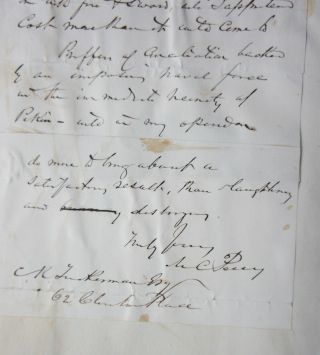 fire & sword, will I apprehend
Cost more than it will Come to
Buffers of Conciliation backed
by an imposing naval force
in the immediate vicinity of
Pekin – will in my opinion
do more to bring about a
satisfactory result, than slaughtering
and destroying
Truly Yours
M C Perry
M Tuckerman Esq
62 Clinton Place